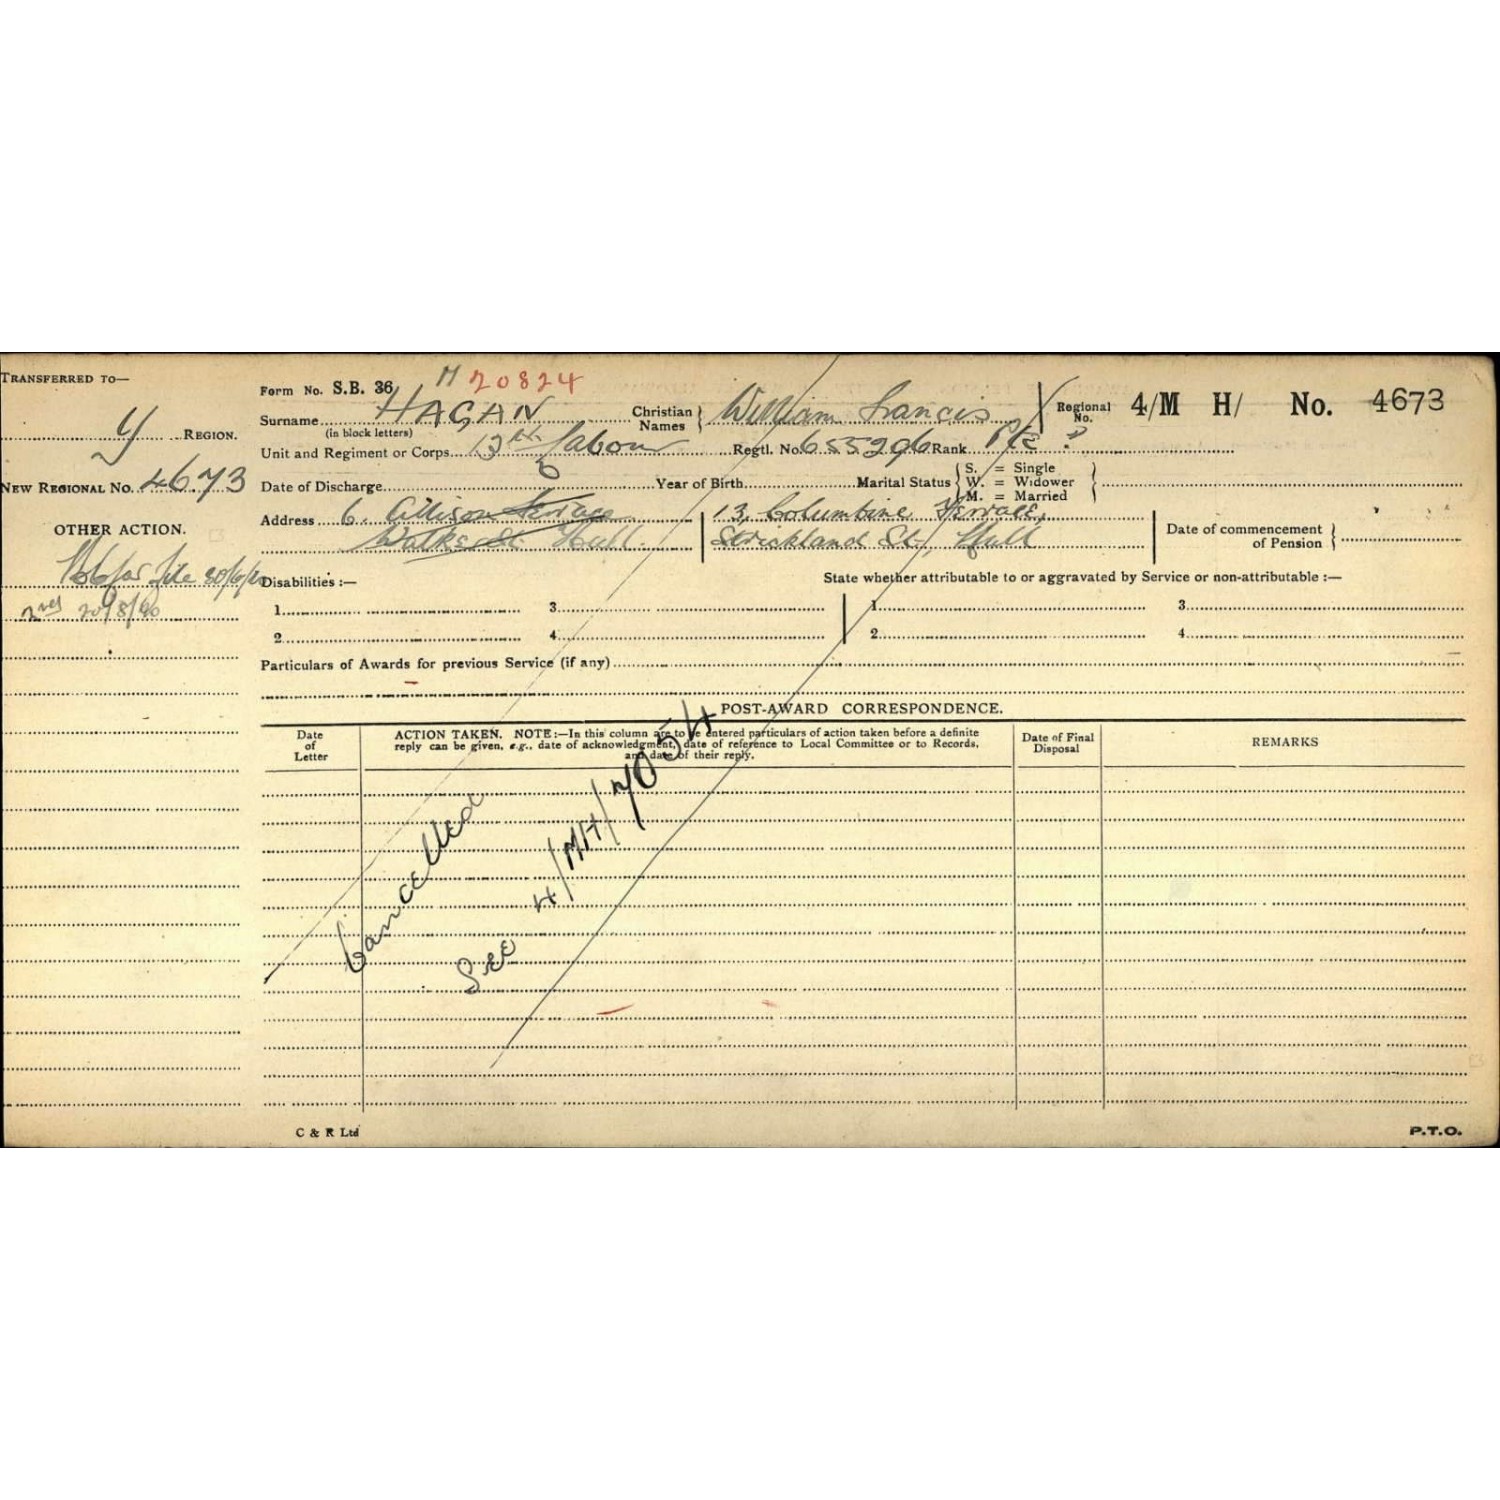 TRANSFERRED TO—
Y REGION.
NEW REGIONAL No. 4673
OTHER ACTION.
file 30/6/20
20/8/20
Form No. S.B. 36 H 20824
Surname HAGAN Christian Names William Francis Regional No. 4/M H/ No. 4673
(in block letters)
Unit and Regiment or Corps 13th Labour Regtl. No. 655296 Rank Pte ?
Date of Discharge Year of Birth Marital Status S. = Single
W. = Widower
M. = Married
Address 6. Allison Terrace 13, Columbine Terrace,
Walker St. Hull. Strickland St., Hull
Date of commencement of Pension
Disabilities :— State whether attributable to or aggravated by Service or non-attributable :—
1. 3. 1. 3.
2. 4. 2. 4.
Particulars of Awards for previous Service (if any)
POST-AWARD CORRESPONDENCE.
Date of Letter
ACTION TAKEN. NOTE:—In this column are to be entered particulars of action taken before a definite
reply can be given, e.g., date of acknowledgment, date of reference to Local Committee or to Records,
and date of their reply.
Date of Final Disposal
REMARKS
Cancelled
See 4/MH/7054
C & R Ltd
P.T.O.